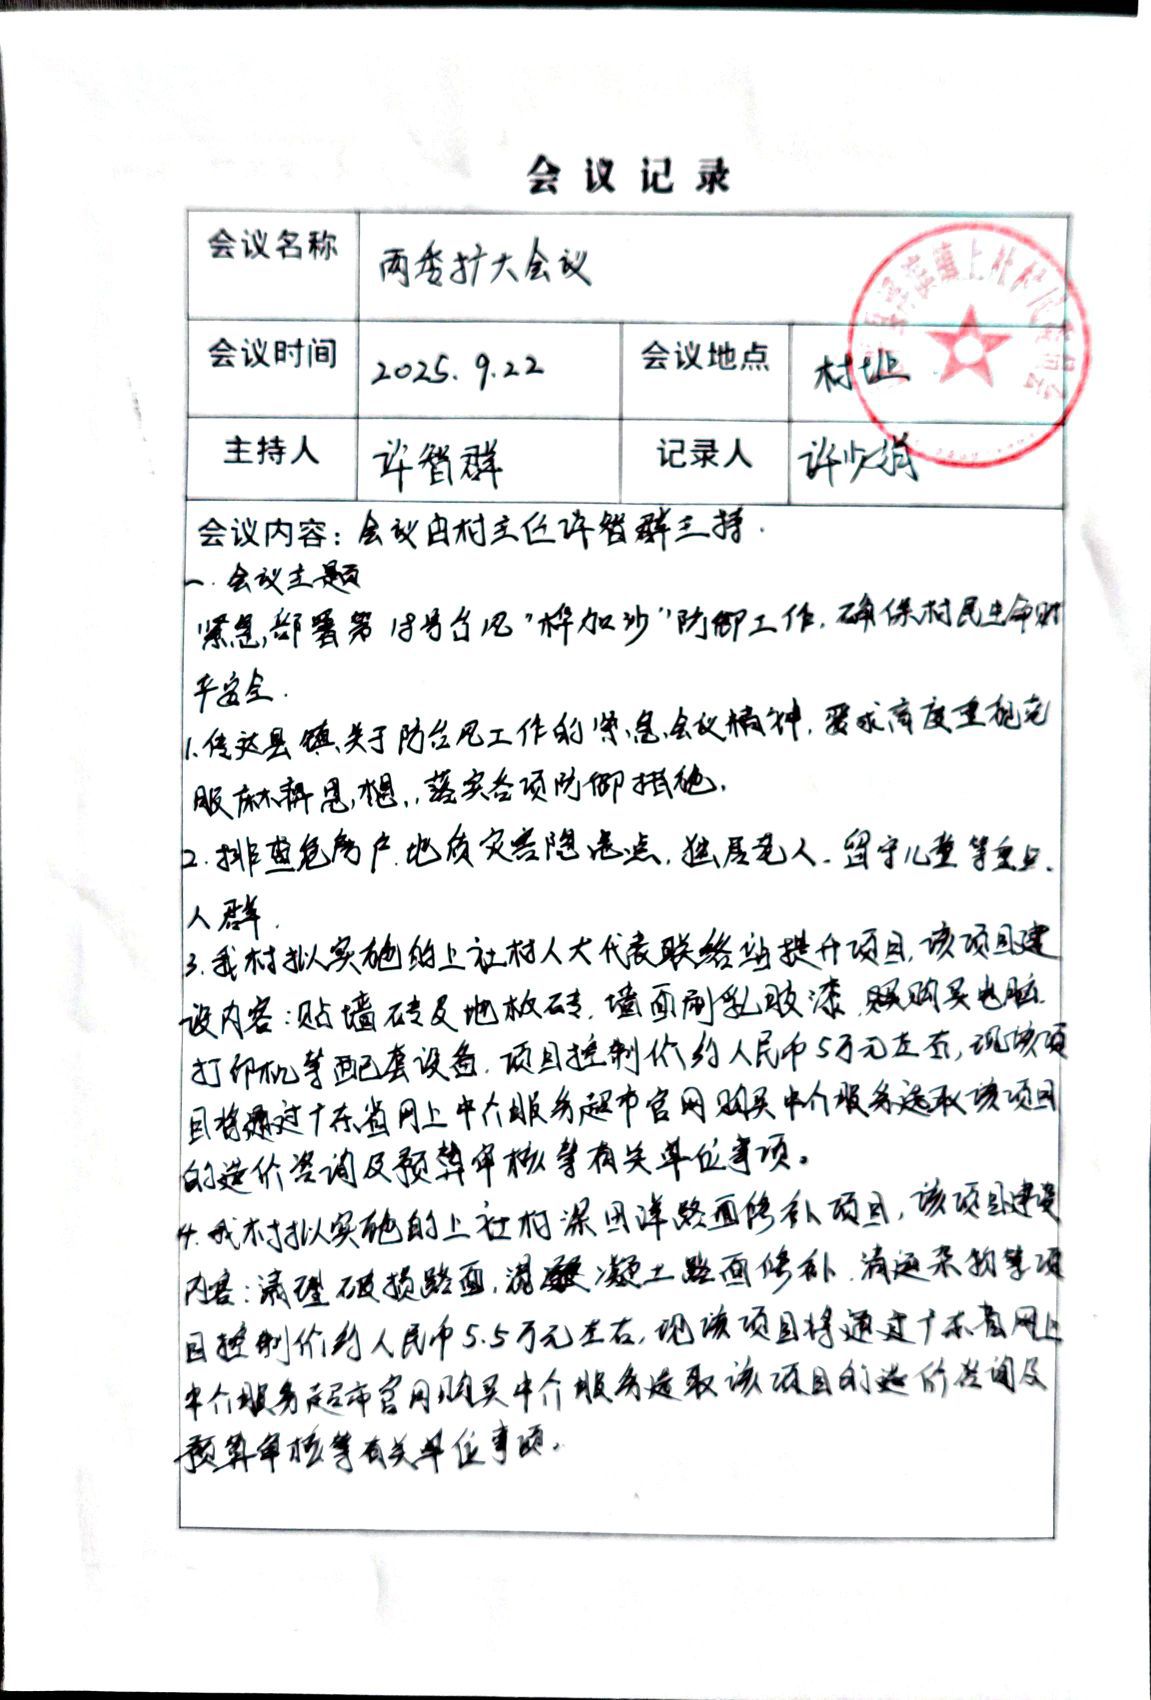 会议记录
会议名称 两委扩大会议
会议时间 2025.9.22 会议地点 村址
主持人 许智群 记录人 许少娟
会议内容：会议由村主任许智群主持.
一.会议主题
紧急部署第18号台风"桦加沙"防御工作,确保村民生命财
产安全.
1.传达县镇关于防台风工作的紧急会议精神,要求高度重视克
服麻痹思想,落实各项防御措施.
2.排查危房户.地质灾害隐患点,独居老人.留守儿童等重点
人群.
3.我村拟实施的上社村人大代表联络站提升项目,该项目建
设内容:贴墙砖及地板砖.墙面刷乳胶漆.购买电脑.
打印机等配套设备.项目控制价约人民币5万元左右,现该项
目将通过广东省网上中介服务超市官网购买中介服务选取该项目
的造价咨询及预算审核等有关单位事项。
4.我村拟实施的上社村深田洋路面修补项目,该项目建设
内容:清理破损路面,混凝土路面修补.清运杂物等项
目控制价约人民币5.5万元左右,现该项目将通过广东省网上
中介服务超市官网购买中介服务选取该项目的造价咨询及
预算审核等有关单位事项。